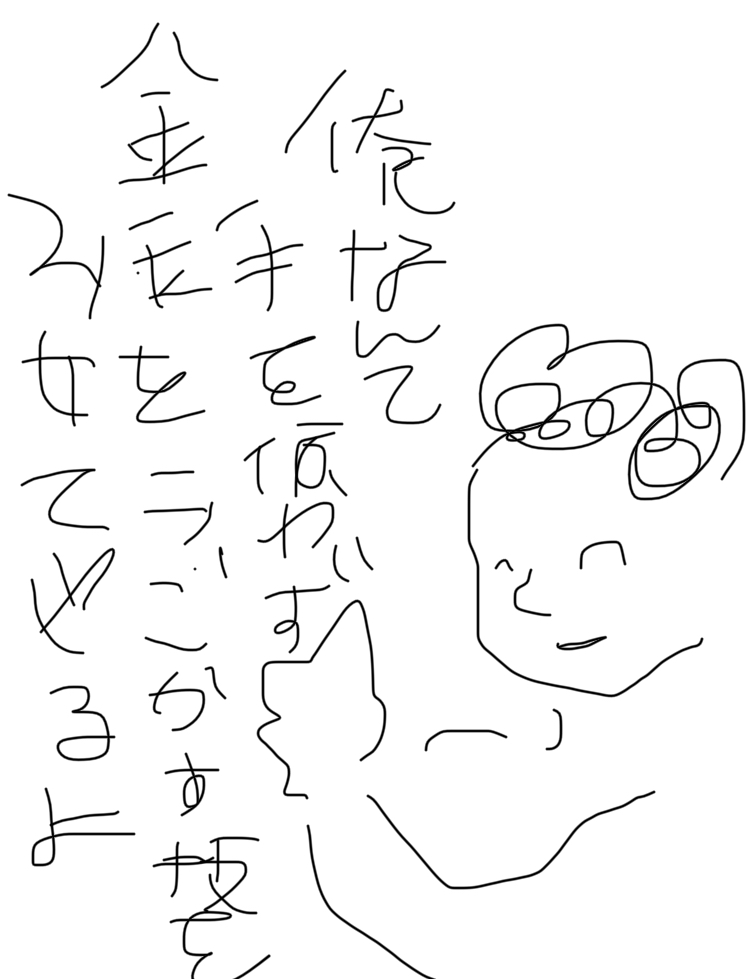 俺なんて
手を使わず
金玉をうごかす技を
みせてやるよ